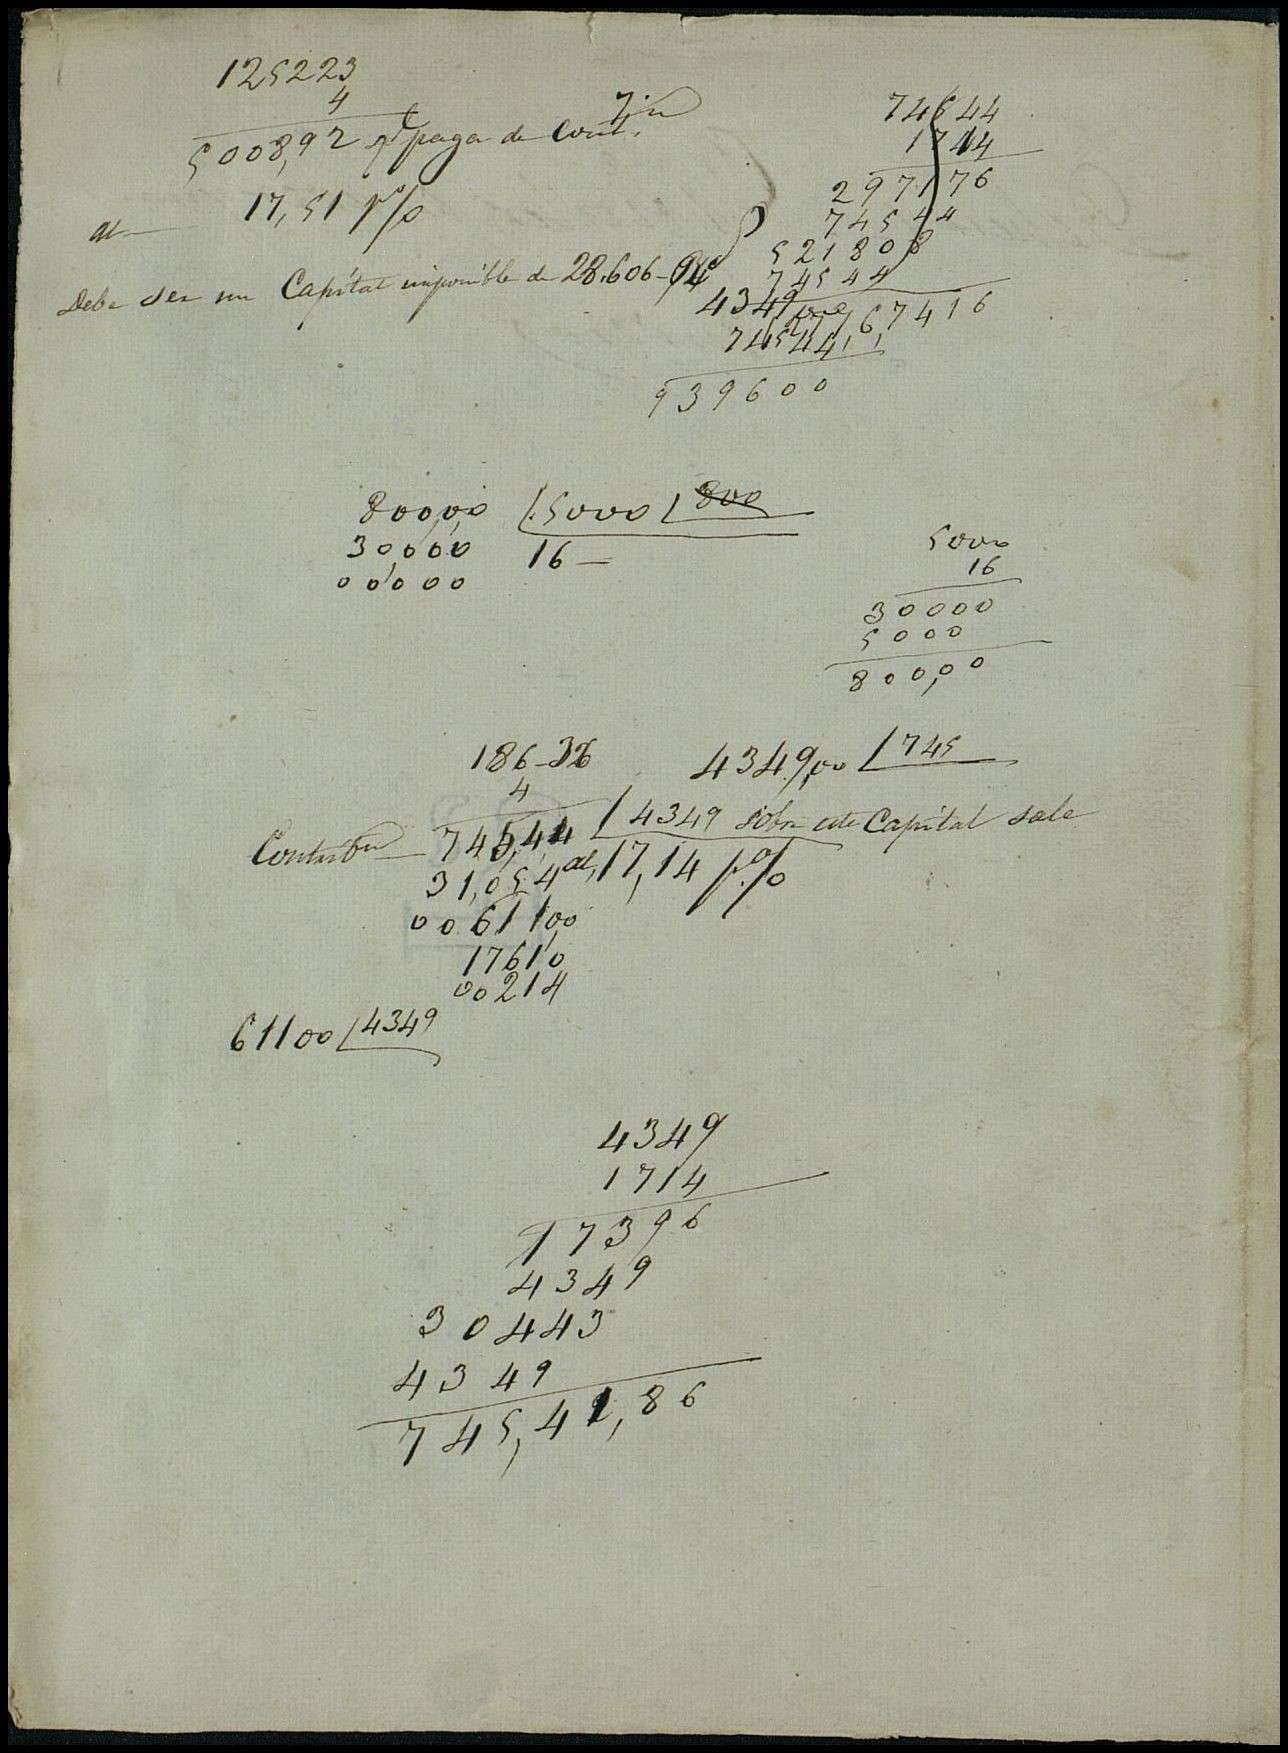 125223
4
5008,92 q.e paga de Cont.
al 17,51 p%
Debe ser un Capital imponible de 28.606-
74544
1714
297176
74544
521808
74544
7416
4349
74544
939600
80000 5000 800
30000 16
00000
5000
16
30000
5000
800,00
186-36
4
4349,00 745
Contribn 745,44 4349 sobre este Capital sale
31,054 al 17,14 p%
0061100
17610
00214
61100 4349
4349
1714
17396
4349
30443
4349
745,41,86